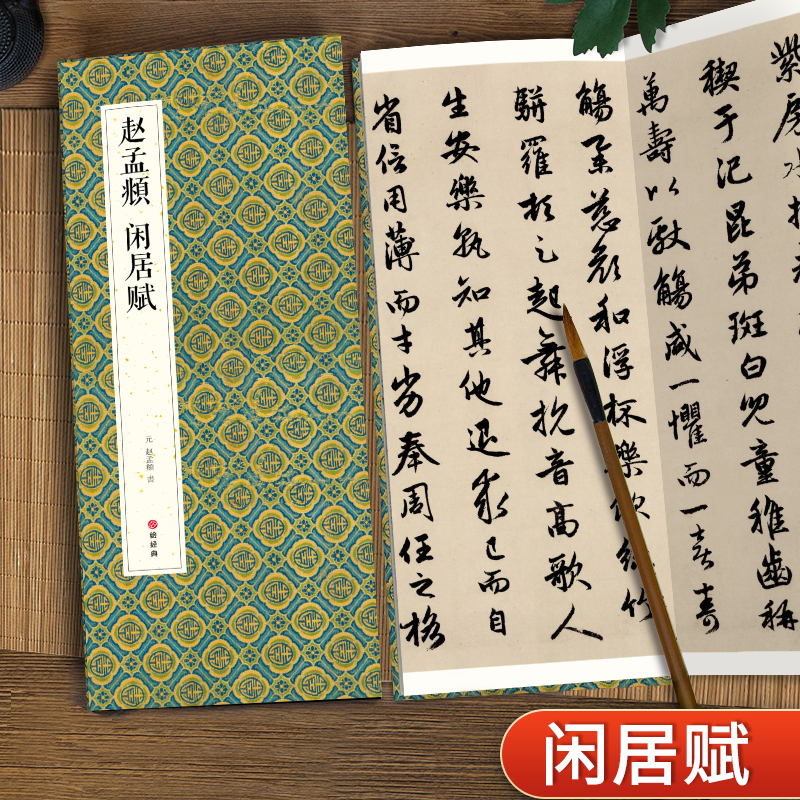 赵孟頫 闲居赋
元 赵孟頫 書
经典
紫房水挂
禊于汜昆弟斑白兒童稚齒称
萬壽以獻觴咸一懼而一喜壽
觴舉慈顏和浮杯樂飲絲竹
駢羅頓足起舞抗音高歌人
生安樂孰知其他退求己而自
省信用薄而才劣奉周任之格
闲居赋